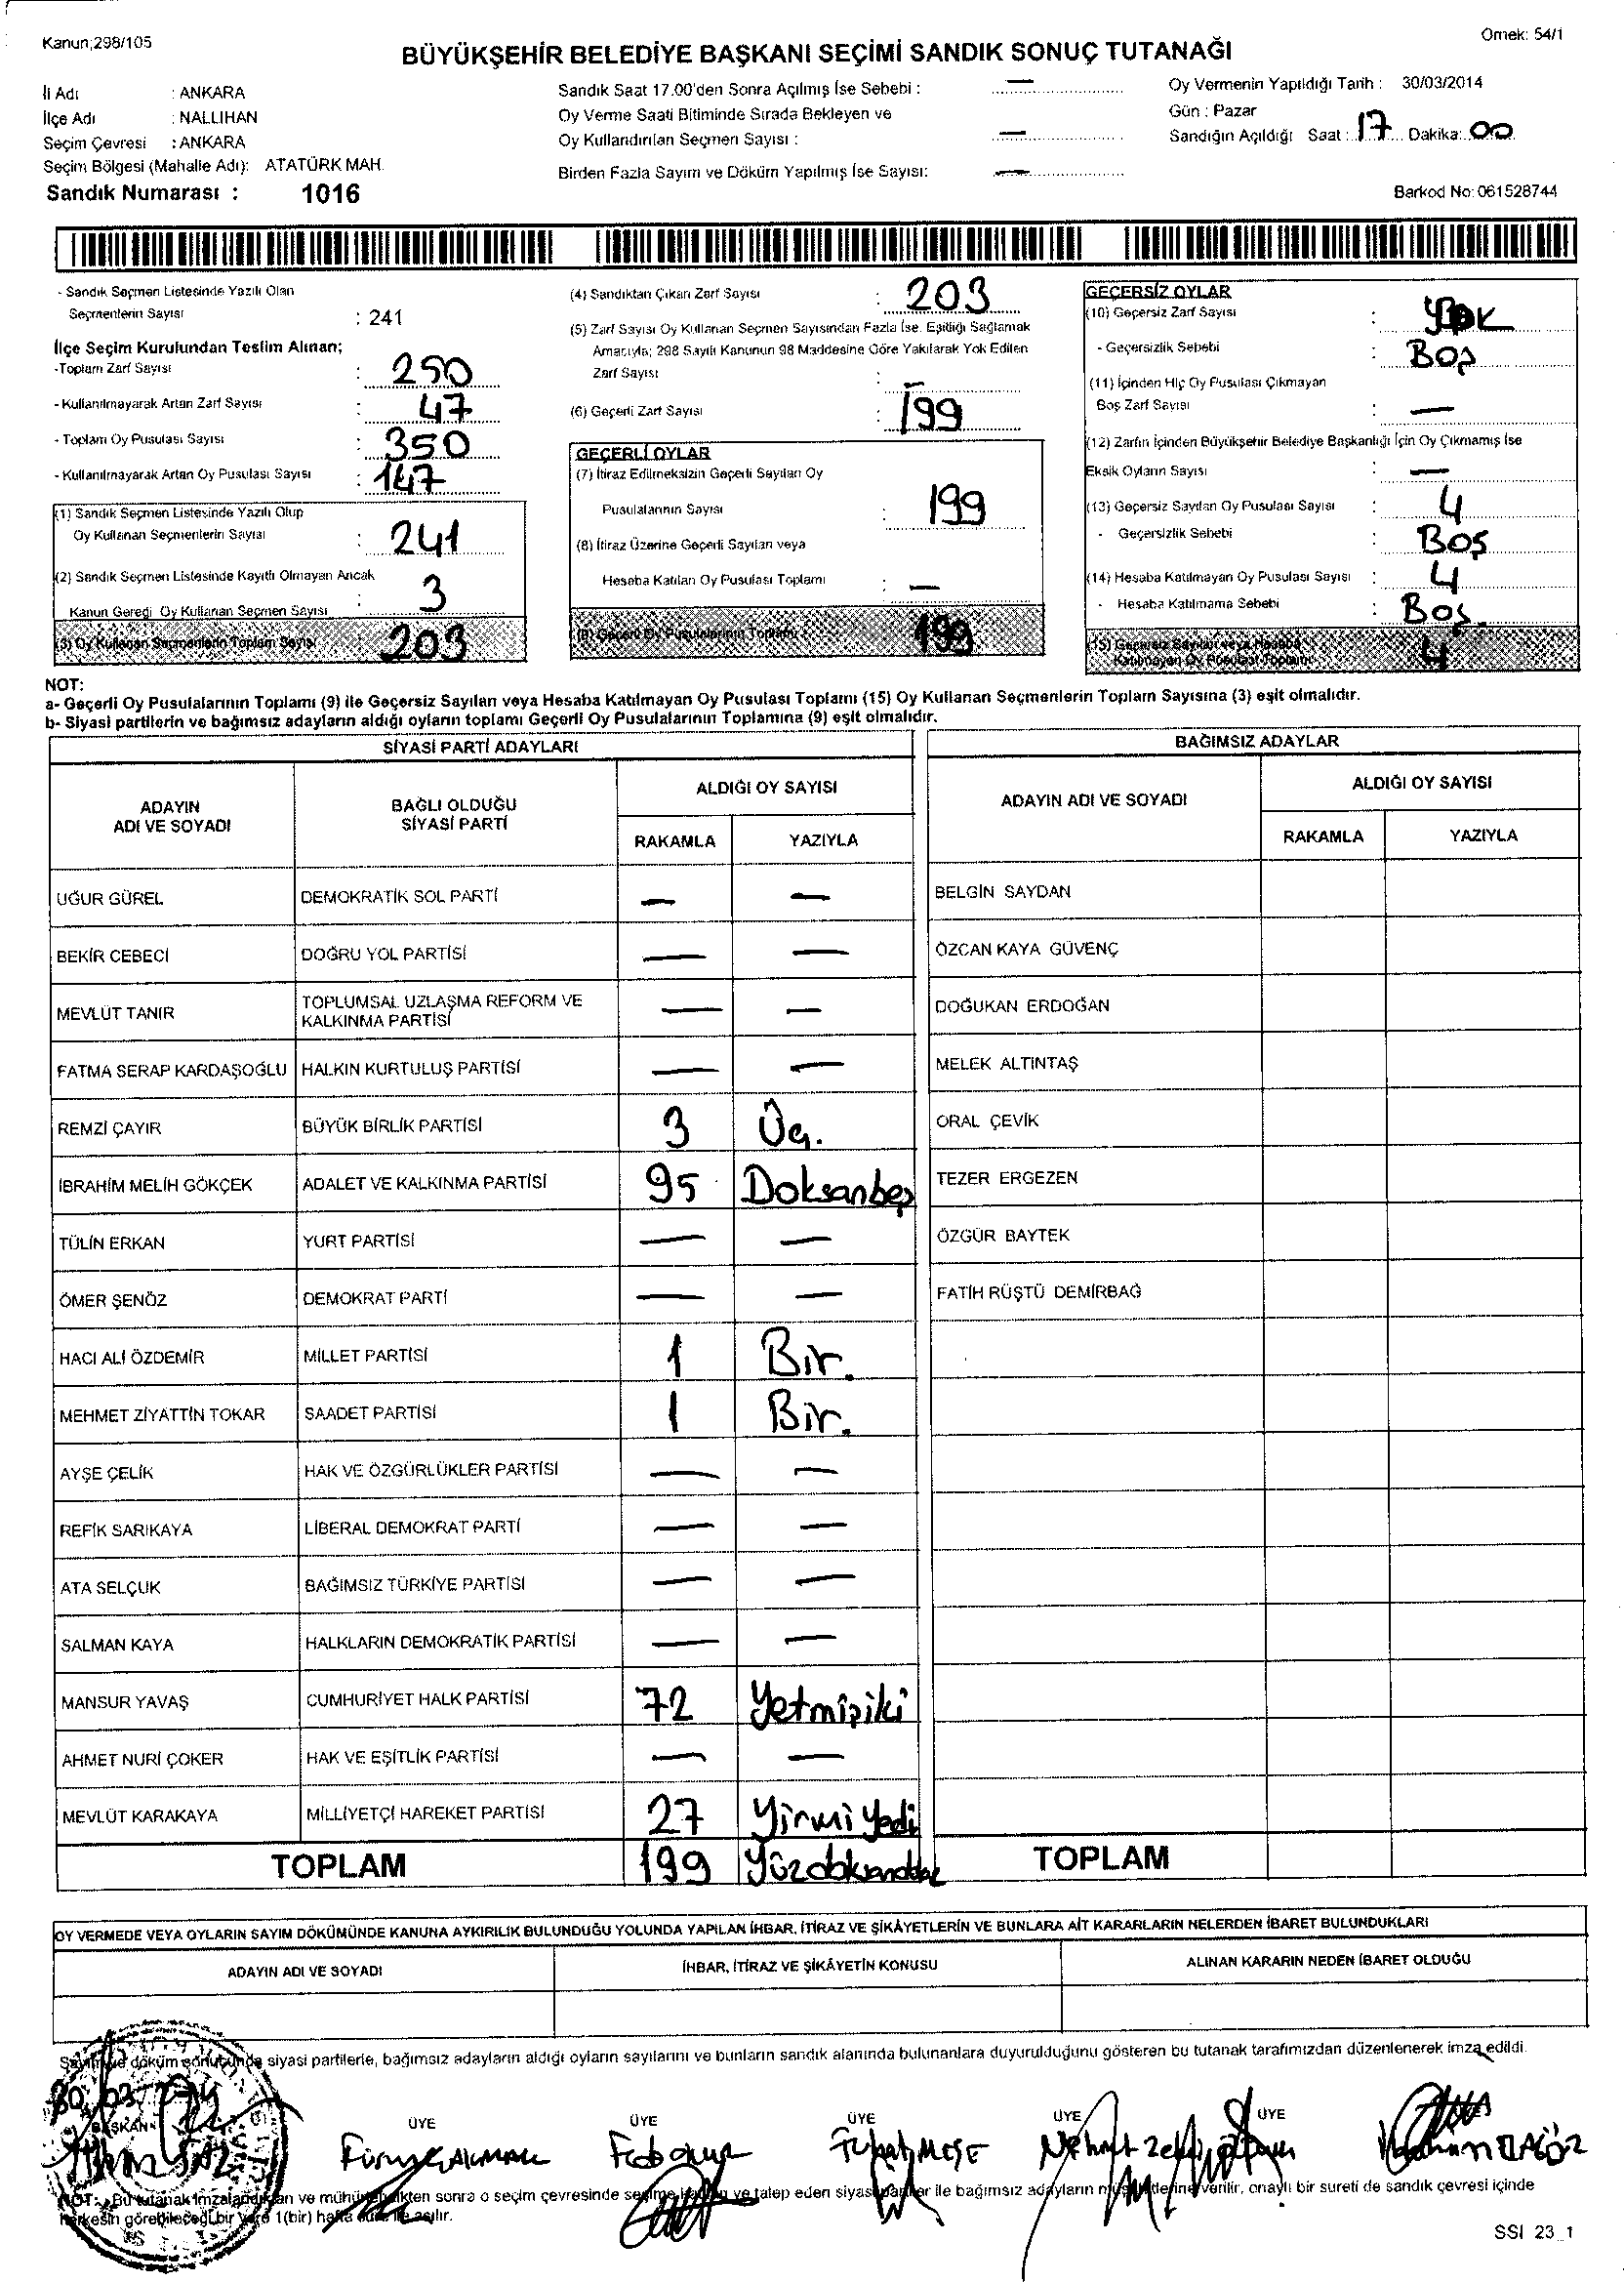 Kanun;298/105
Örnek: 54/1
BÜYÜKŞEHİR BELEDİYE BAŞKANI SEÇİMİ SANDIK SONUÇ TUTANAĞI
İli Adı : ANKARA
İlçe Adı : NALLIHAN
Seçim Çevresi : ANKARA
Seçim Bölgesi (Mahalle Adı): ATATÜRK MAH.
Sandık Numarası : 1016
Sandık Saat 17.00'den Sonra Açılmış İse Sebebi : —
Oy Verme Saati Bitiminde Sırada Bekleyen ve
Oy Kullandırılan Seçmen Sayısı : —
Birden Fazla Sayım ve Döküm Yapılmış İse Sayısı: —
Oy Vermenin Yapıldığı Tarih : 30/03/2014
Gün : Pazar
Sandığın Açıldığı Saat : 17 Dakika: 00
Barkod No: 061528744
- Sandık Seçmen Listesinde Yazılı Olan
Seçmenlerin Sayısı : 241
İlçe Seçim Kurulundan Teslim Alınan;
-Toplam Zarf Sayısı : 250
- Kullanılmayarak Artan Zarf Sayısı : 47
- Toplam Oy Pusulası Sayısı : 350
- Kullanılmayarak Artan Oy Pusulası Sayısı : 147
(1) Sandık Seçmen Listesinde Yazılı Olup
Oy Kullanan Seçmenlerin Sayısı : 241
(2) Sandık Seçmen Listesinde Kayıtlı Olmayan Ancak
Kanun Gereği Oy Kullanan Seçmen Sayısı : 3
(3) Oy Kullanan Seçmenlerin Toplam Sayısı 203
(4) Sandıktan Çıkan Zarf Sayısı : 203
(5) Zarf Sayısı Oy Kullanan Seçmen Sayısından Fazla İse, Eşitliği Sağlamak
Amacıyla; 298 Sayılı Kanunun 98 Maddesine Göre Yakılarak Yok Edilen
Zarf Sayısı : —
(6) Geçerli Zarf Sayısı : 199
GEÇERLİ OYLAR
(7) İtiraz Edilmeksizin Geçerli Sayılan Oy
Pusulalarının Sayısı : 199
(8) İtiraz Üzerine Geçerli Sayılan veya
Hesaba Katılan Oy Pusulası Toplamı : —
(9) Geçerli Oy Pusulalarının Toplamı 199
GEÇERSİZ OYLAR
(10) Geçersiz Zarf Sayısı : Yok
- Geçersizlik Sebebi : Boş
(11) İçinden Hiç Oy Pusulası Çıkmayan
Boş Zarf Sayısı : —
(12) Zarfın İçinden Büyükşehir Belediye Başkanlığı İçin Oy Çıkmamış İse
Eksik Oyların Sayısı : —
(13) Geçersiz Sayılan Oy Pusulası Sayısı : 4
- Geçersizlik Sebebi : Boş
(14) Hesaba Katılmayan Oy Pusulası Sayısı : 4
- Hesaba Katılmama Sebebi : Boş.
(15) Geçersiz Sayılan veya Hesaba
Katılmayan Oy Pusulası Toplamı 4
NOT:
a- Geçerli Oy Pusulalarının Toplamı (9) ile Geçersiz Sayılan veya Hesaba Katılmayan Oy Pusulası Toplamı (15) Oy Kullanan Seçmenlerin Toplam Sayısına (3) eşit olmalıdır.
b- Siyasi partilerin ve bağımsız adayların aldığı oyların toplamı Geçerli Oy Pusulalarının Toplamına (9) eşit olmalıdır.
SİYASİ PARTİ ADAYLARI
ADAYIN ADI VE SOYADI
BAĞLI OLDUĞU SİYASİ PARTİ
ALDIĞI OY SAYISI
RAKAMLA YAZIYLA
UĞUR GÜREL DEMOKRATİK SOL PARTİ — —
BEKİR CEBECİ DOĞRU YOL PARTİSİ — —
MEVLÜT TANIR TOPLUMSAL UZLAŞMA REFORM VE KALKINMA PARTİSİ — —
FATMA SERAP KARDAŞOĞLU HALKIN KURTULUŞ PARTİSİ — —
REMZİ ÇAYIR BÜYÜK BİRLİK PARTİSİ 3 Üç.
İBRAHİM MELİH GÖKÇEK ADALET VE KALKINMA PARTİSİ 95 Doksanbeş
TÜLİN ERKAN YURT PARTİSİ — —
ÖMER ŞENÖZ DEMOKRAT PARTİ — —
HACI ALİ ÖZDEMİR MİLLET PARTİSİ 1 Bir.
MEHMET ZİYATTİN TOKAR SAADET PARTİSİ 1 Bir.
AYŞE ÇELİK HAK VE ÖZGÜRLÜKLER PARTİSİ — —
REFİK SARIKAYA LİBERAL DEMOKRAT PARTİ — —
ATA SELÇUK BAĞIMSIZ TÜRKİYE PARTİSİ — —
SALMAN KAYA HALKLARIN DEMOKRATİK PARTİSİ — —
MANSUR YAVAŞ CUMHURİYET HALK PARTİSİ 72 Yetmişiki
AHMET NURİ ÇOKER HAK VE EŞİTLİK PARTİSİ — —
MEVLÜT KARAKAYA MİLLİYETÇİ HAREKET PARTİSİ 27 Yirmi Yedi
TOPLAM 199
BAĞIMSIZ ADAYLAR
ADAYIN ADI VE SOYADI
ALDIĞI OY SAYISI
RAKAMLA YAZIYLA
BELGİN SAYDAN
ÖZCAN KAYA GÜVENÇ
DOĞUKAN ERDOĞAN
MELEK ALTINTAŞ
ORAL ÇEVİK
TEZER ERGEZEN
ÖZGÜR BAYTEK
FATİH RÜŞTÜ DEMİRBAĞ
TOPLAM
OY VERMEDE VEYA OYLARIN SAYIM DÖKÜMÜNDE KANUNA AYKIRILIK BULUNDUĞU YOLUNDA YAPILAN İHBAR, İTİRAZ VE ŞİKÂYETLERİN VE BUNLARA AİT KARARLARIN NELERDEN İBARET BULUNDUKLARI
ADAYIN ADI VE SOYADI
İHBAR, İTİRAZ VE ŞİKÂYETİN KONUSU
ALINAN KARARIN NEDEN İBARET OLDUĞU
Sayım ve döküm sonucunda siyasi partilerle, bağımsız adayların aldığı oyların sayılarını ve bunların sandık alanında bulunanlara duyurulduğunu gösteren bu tutanak tarafımızdan düzenlenerek imza edildi.
BAŞKAN ÜYE ÜYE ÜYE ÜYE ÜYE
NOT: Bu tutanak imzalandıktan ve mühürlendikten sonra o seçim çevresinde seçime katılan ve talep eden siyasi partiler ile bağımsız adayların müşahitlerine verilir, onaylı bir sureti de sandık çevresi içinde
herkesin görebileceği bir yere 1(bir) hafta süre ile asılır.
SSI 23_1